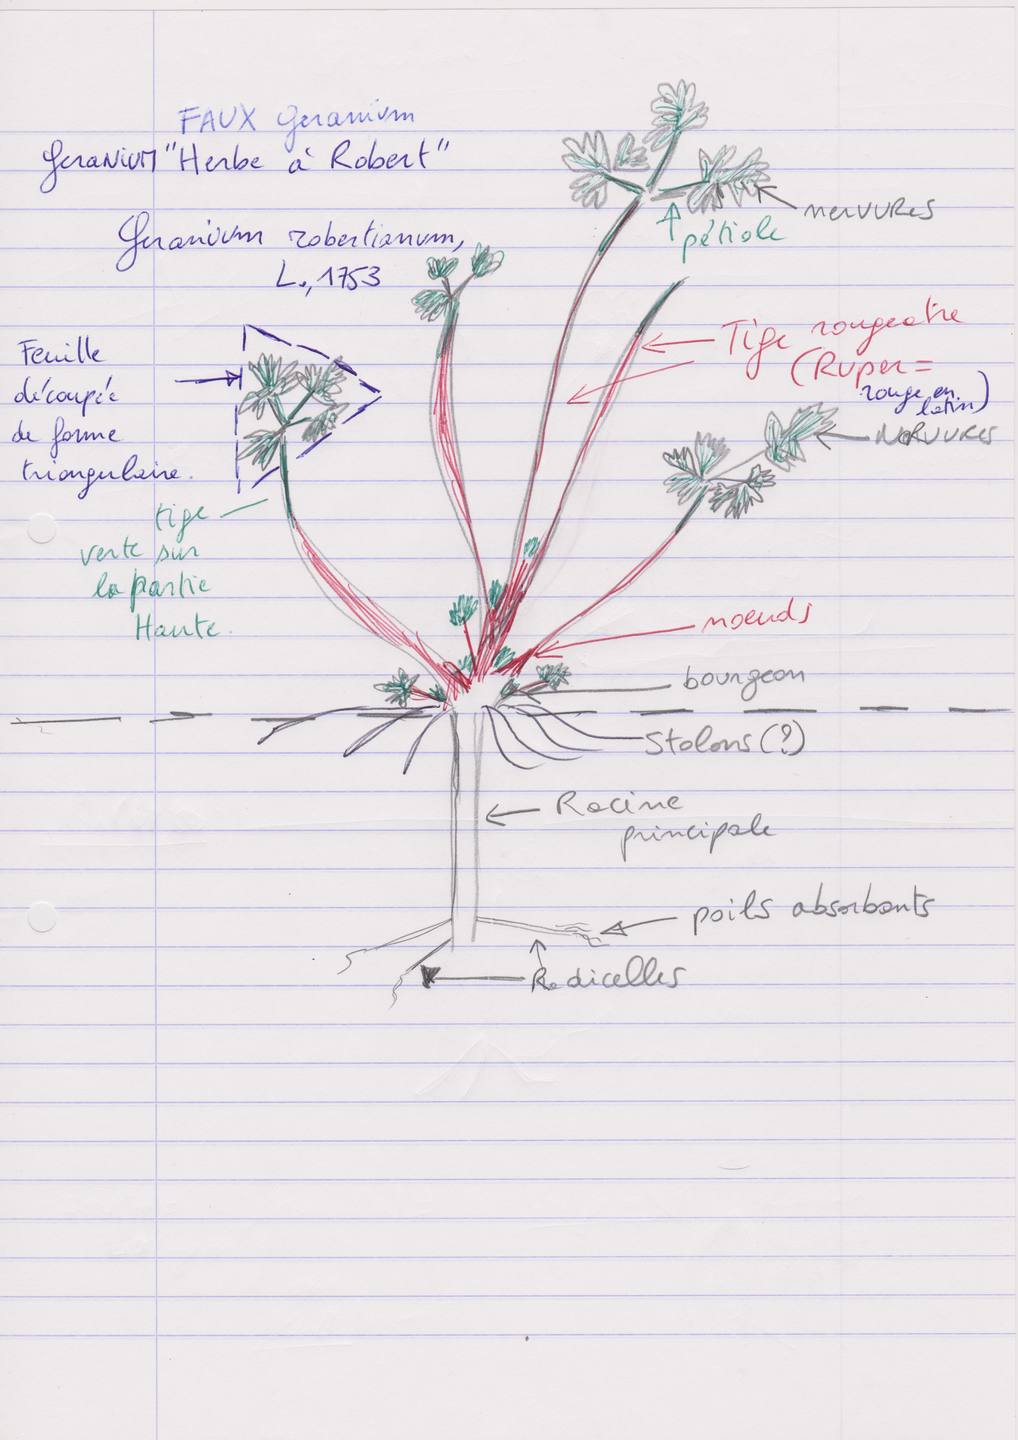 FAUX Geranium
Geranium "Herbe à Robert"
Geranium robertianum,
L., 1753
nervures
pétiole
Tige rougeatre
(Ruper =
rouge en
latin)
Feuille
découpée
de forme
triangulaire.
nervures
tige
verte sur
la partie
Haute.
noeuds
bourgeon
Stolons (?)
Racine
principale
poils absorbants
Radicelles